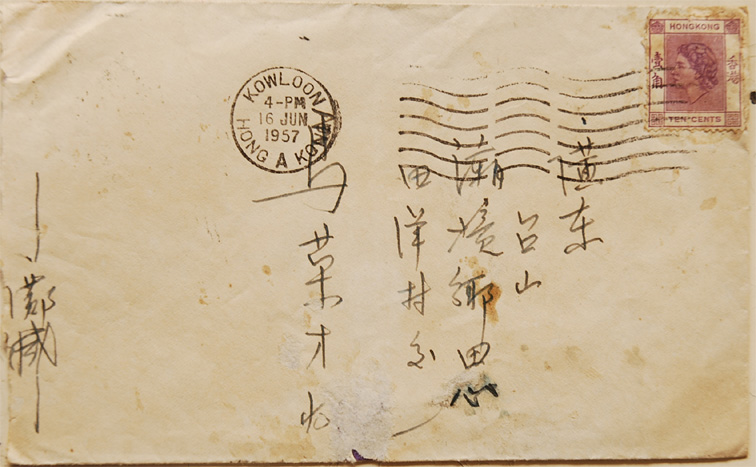 HONGKONG
壹角
香港
TEN·CENTS
KOWLOON
4-PM
16 JUN
1957
A
HONG KONG
廣东
台山
潮境鄉田心
田洋村交
马荣才收
鄺緘